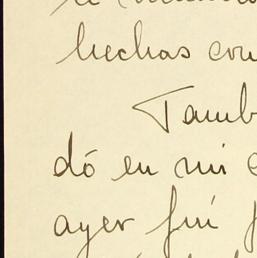 hechas con
Tamb
dó en mi
ayer fuí